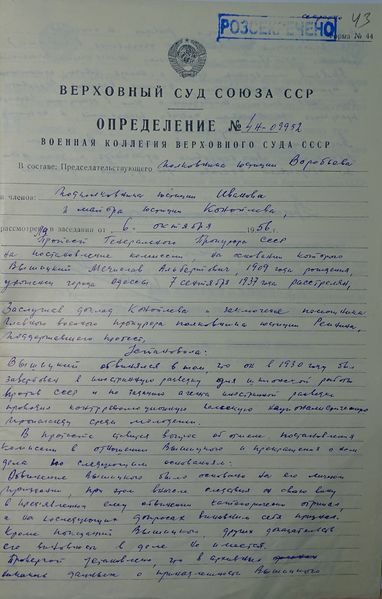 Секретно
43
РОЗСЕКРЕЧЕНО
Форма № 44
ВЕРХОВНЫЙ СУД СОЮЗА ССР
ОПРЕДЕЛЕНИЕ № 4н-09952
ВОЕННАЯ КОЛЛЕГИЯ ВЕРХОВНОГО СУДА СССР
В составе: Председательствующего полковника юстиции Воробьева
и членов: Подполковника юстиции Иванова
и майора юстиции Коноплева,
рассмотрев в заседании от 6 октября 1956 г.
Протест Генерального Прокурора СССР
на постановление комиссии, на основании которого
Вышацкий Мечислав Альбертович, 1909 года рождения,
уроженец города Одессы 7 сентября 1937 года расстрелян,
Заслушав доклад Коноплева и заключение помощника
Главного военного прокурора полковника юстиции
поддержавшего протест,
Установила:
Вышацкий обвинялся в том, что он в 1930 году был
завербован в иностранную разведку для шпионской работы
против СССР и по заданию агента иностранной разведки
проводил контрреволюционную националистическую
пропаганду среди молодежи.
В протесте ставится вопрос об отмене постановления
Комиссии в отношении Вышацкого и прекращении о нем
дела по следующим основаниям:
Обвинение Вышацкого было основано на его личном
признании, при этом вначале следствия он свою вину
в предъявленном ему обвинении категорически отрицал,
а на последующих допросах виновным себя признал.
Кроме показаний Вышацкого других доказательств
его виновности в деле не имеется.
Проверкой установлено, что в архивных
никаких данных о принадлежности Вышацкого